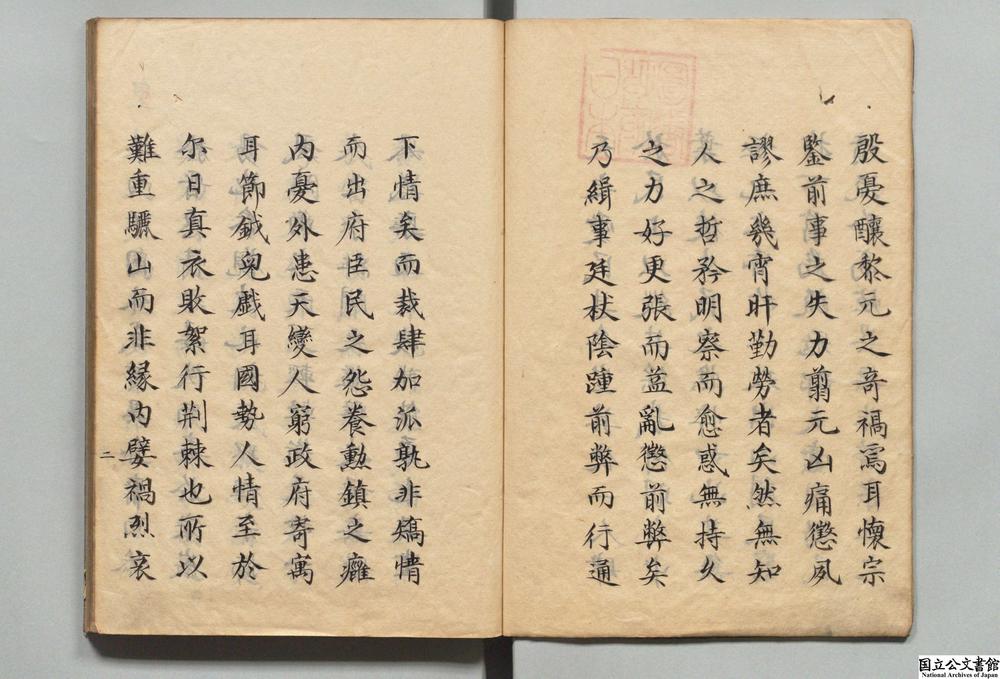 殷憂釀黎元之奇禍焉耳懷宗
鍳前事之失力翦元凶痛懲夙
謬庶幾宵旰勤勞者矣然無知
人之哲矜明察而愈惑無持久
之力好更張而益亂懲前弊矣
乃緝事廷杖陰踵前弊而行通
下情矣而裁肆加派孰非矯情
而出府臣民之怨養勳鎮之癰
内憂外患天變人窮政府寄寓
耳節鉞兒戯耳國勢人情至於
尔日真衣敗絮行荆棘也所以
難重驪山而非縁内嬖禍烈哀
二
国立公文書館
National Archives of Japan